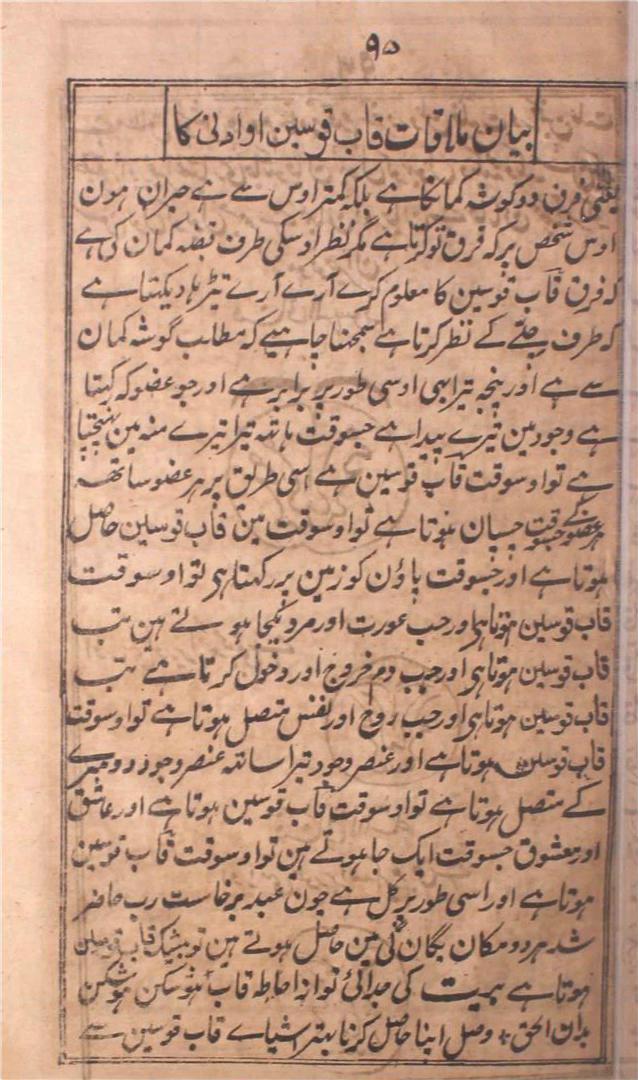 ۹۵
بیان ملاقات قاب قوسین او ادنیٰ کا
یعنی فرق دو گوشہ کمانکا ہے بلکہ کمتر اوس سے ہے حیران ہون
اوس شخص پر کہ فرق تو کرتا ہے مگر نظر اوسکی طرف قبضہ کمان کی ہے
کہ فرق قاب قوسین کا معلوم کرے آرے آرے تیر بلد دیکہتا ہے
کہ طرف چلّے کے نظر کرتا ہے سمجھنا چاہیے کہ مطلب گوشہ کمان
سے ہے اور پنجہ تیرا بہی اوسی طور پر برابر ہے اور جو عضو کہ کہتا
ہے وجود مین تیرے پیدا ہے جسوقت ہاتہ تیرا تیرے منہ مین پہنچتا
ہے تو اوسوقت قاب قوسین ہے اسی طریق پر ہر عضو ساتہہ
ہر عضو کے جسوقت چسپان ہوتا ہے تو اوسوقت مین قاب قوسین حاصل
ہوتا ہے اور جسوقت پاؤن کو زمین پر رکہتا ہی تو اوسوقت
قاب قوسین ہوتا ہی اور جب عورت اور مرد یکجا ہوتے ہین تب
قاب قوسین ہوتا ہی اور جب دم خروج اور دخول کرتا ہے تب
قاب قوسین ہوتا ہی اور جب روح اور نفس متصل ہوتا ہے تو اوسوقت
قاب قوسین ہوتا ہے اور عنصر وجود تیرا ساتہ عنصر وجود دوسرے
کے متصل ہوتا ہے تو اوسوقت قاب قوسین ہوتا ہے اور عاشق
اور معشوق جسوقت ایک جا ہوتے ہین تو اوسوقت قاب قوسین
ہوتا ہے اور اسی طور پر کل ہے چون عبد برخاست رب حاضر
شد ہر دو مکان یگانگی مین حاصل ہوتے ہین تو بیشک قاب قوسین
ہوتا ہے ہمیت کی جدائی تو انہ احاطہ قاب
بدان الحق ٭ وصل اپنا حاصل کرنا بہتر اشیاے قاب قوسین سے